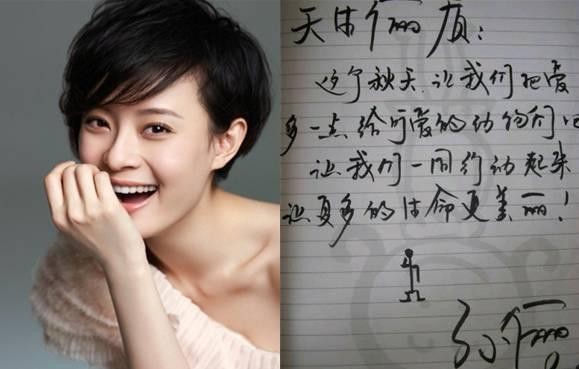 天生俪质:
这个秋天,让我们把爱
多一点给可爱的动物们吧
让我们一同行动起来
让更多的生命更美丽!
孙俪